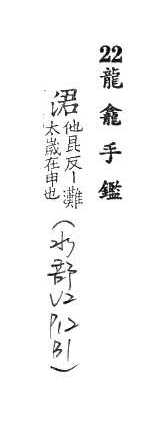 22龍龕手鑑
涒他昆反丨灘
太歲在申也
(水部V2
P12
B1)